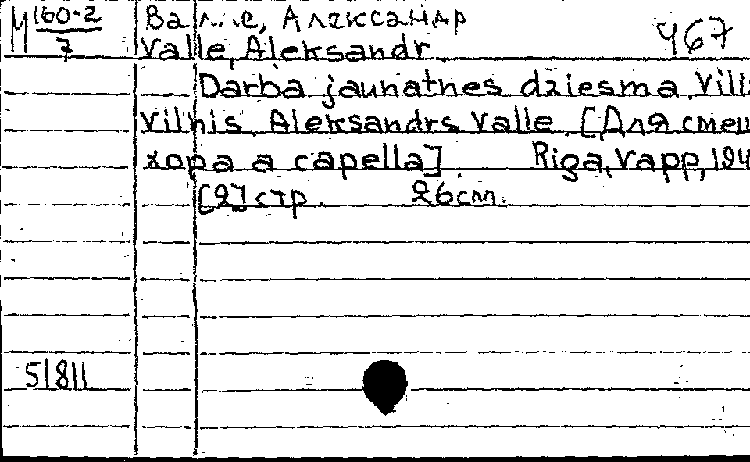 М 160-2/7
Валле, Александр
467
Valle, Aleksandr
Darba jaunatnes dziesma. Vili
Vilnis. Aleksandrs Valle. [Для смеш
хора a capella]. Riga, Vapp, 194
[2] стр. 26 cm.
51811